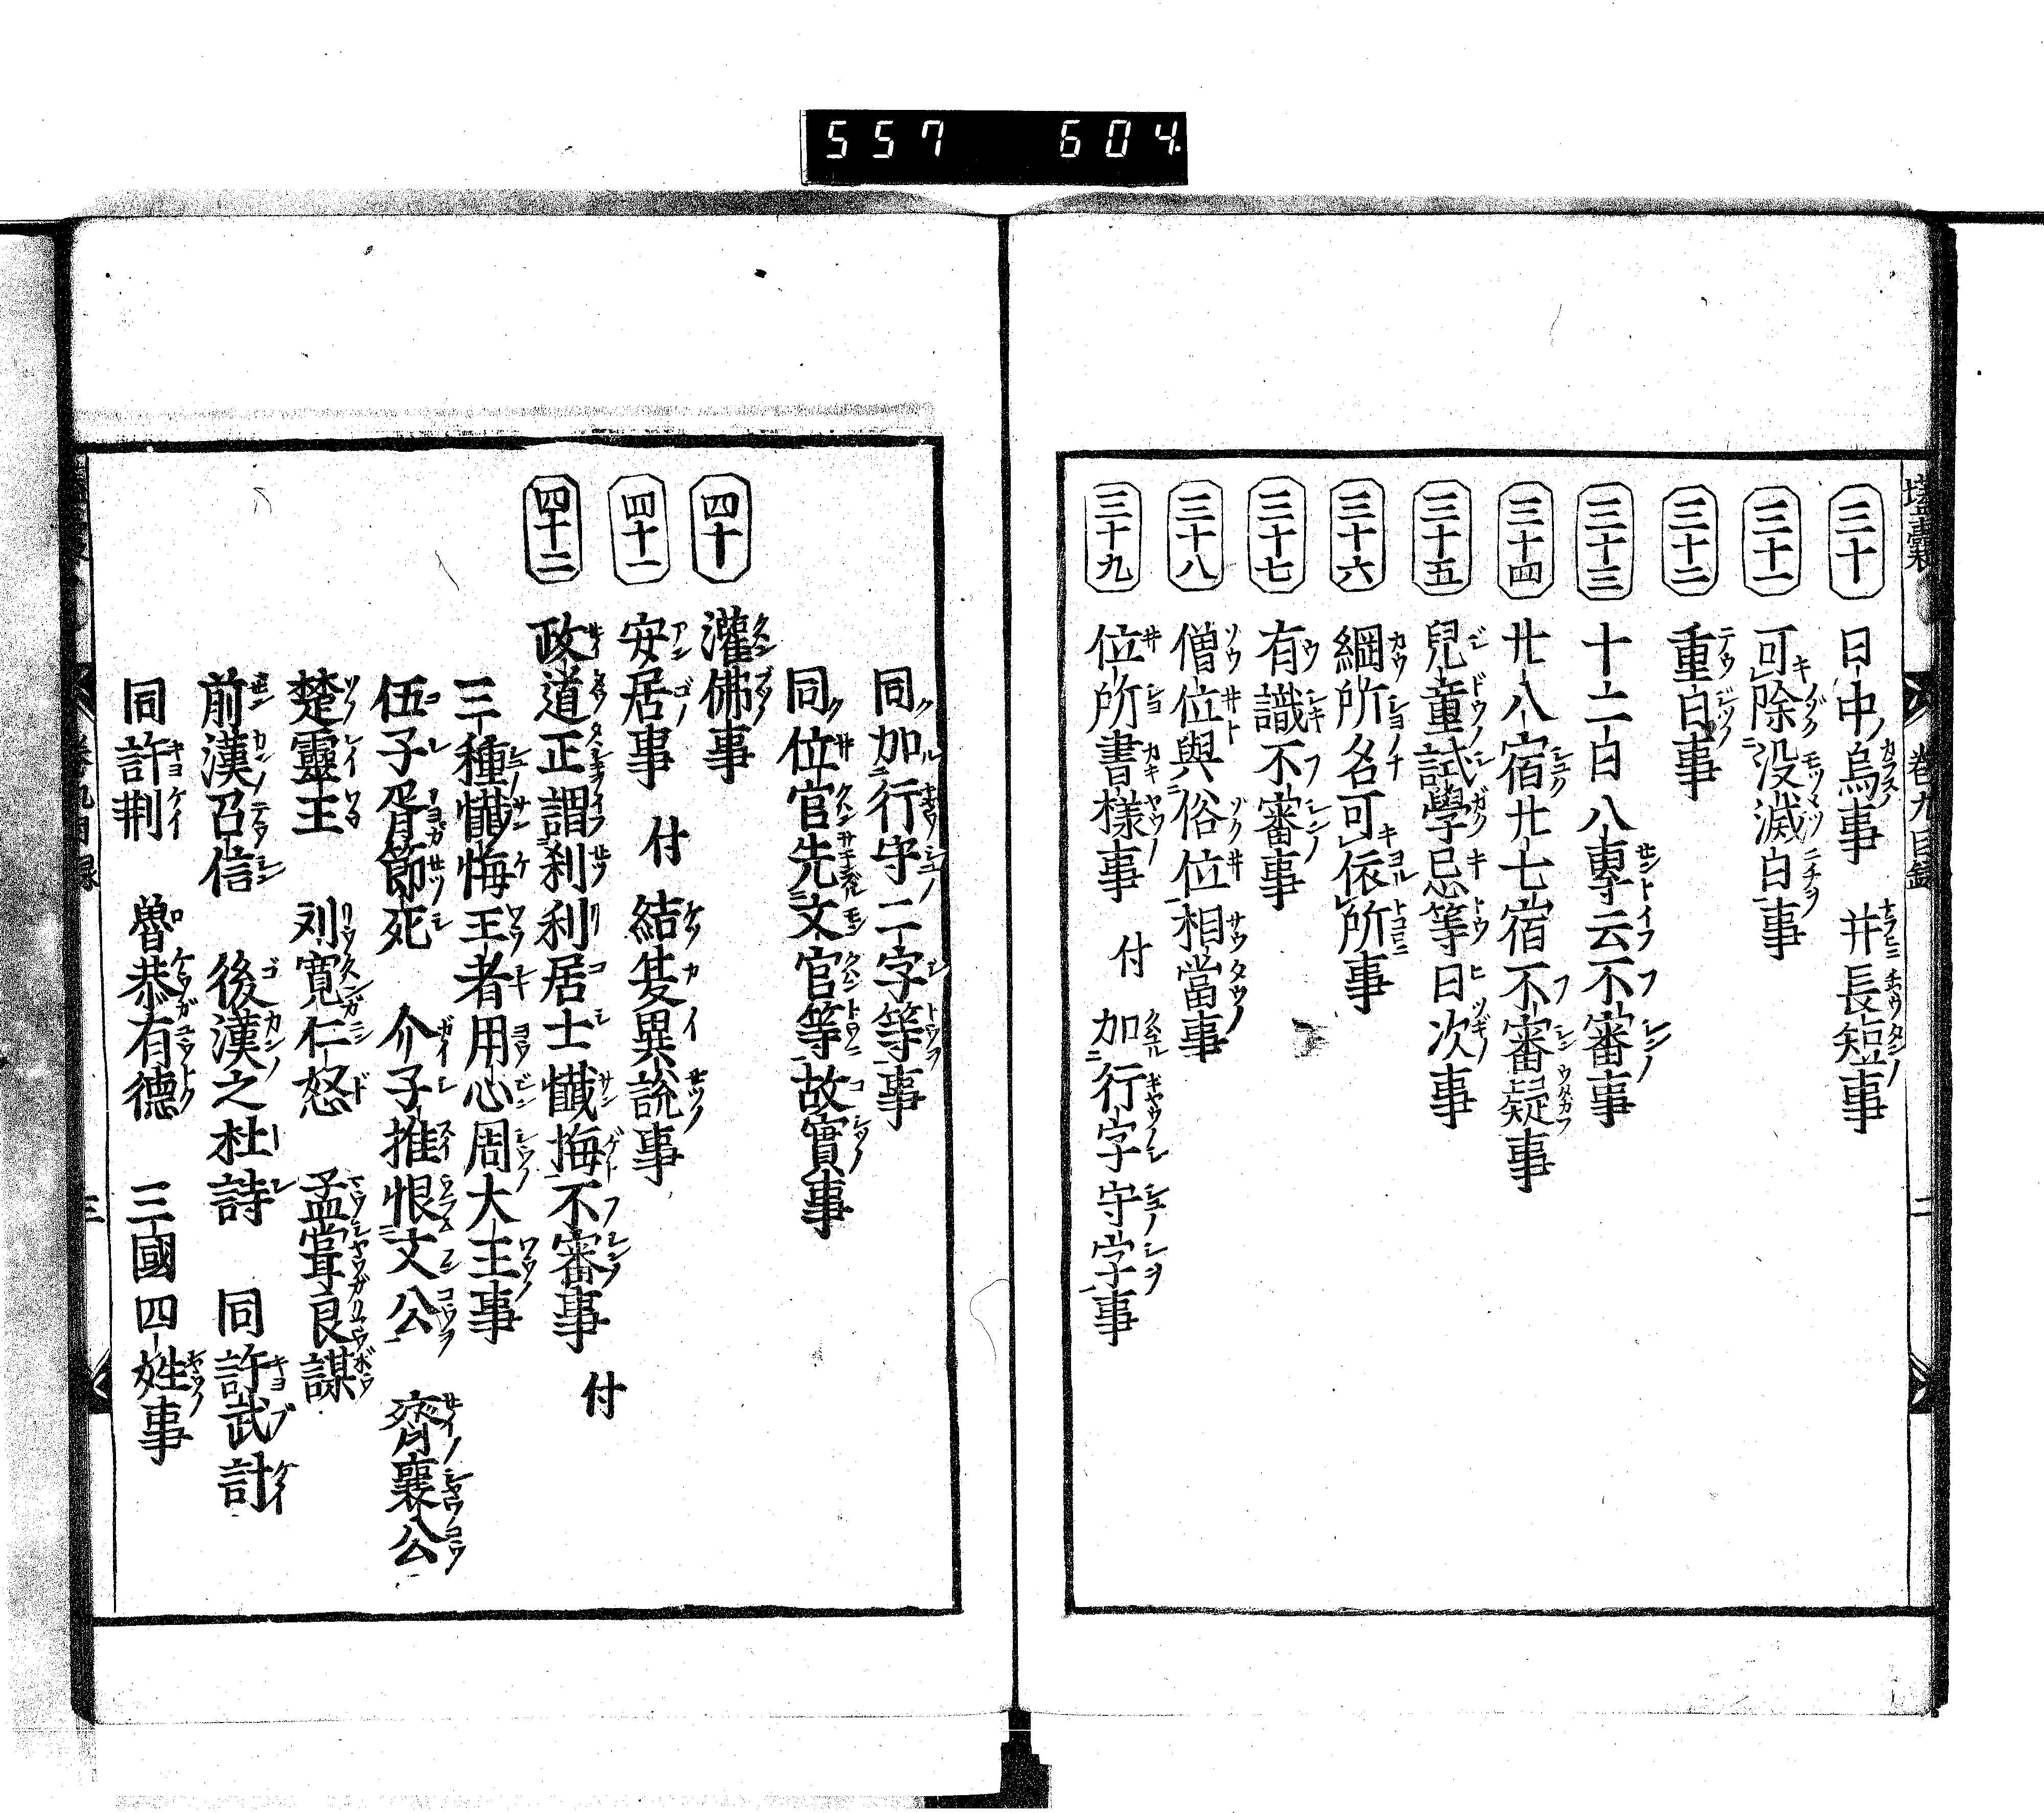 557 604
壒囊 卷九目録 二
三十 日中ノ烏事 并長短ノ事
三十一 可除没滅日事
三十二 重日事
三十三 十二日八專云不審事
三十四 廿八宿廿七宿不審疑事
三十五 兒童試學忌等日次事
三十六 綱所名可依所事
三十七 有識不審事
三十八 僧位與俗位相當事
三十九 位所書樣事 付 加行字守字事
同加行守二字等事
同位官先文官等故實事
四十 灌佛事
四十一 安居事 付 結夏異說事
四十二 政道正謂刹利居士懺悔不審事 付
三種懺悔王者用心周大王事
伍子胥節死 介子推恨文公 齊襄公
楚靈王 刘寬仁怒 孟甞良謀
前漢召信 後漢之杜詩 同許武計
同許荆 魯恭有德 三國四姓事
卷九目録 三